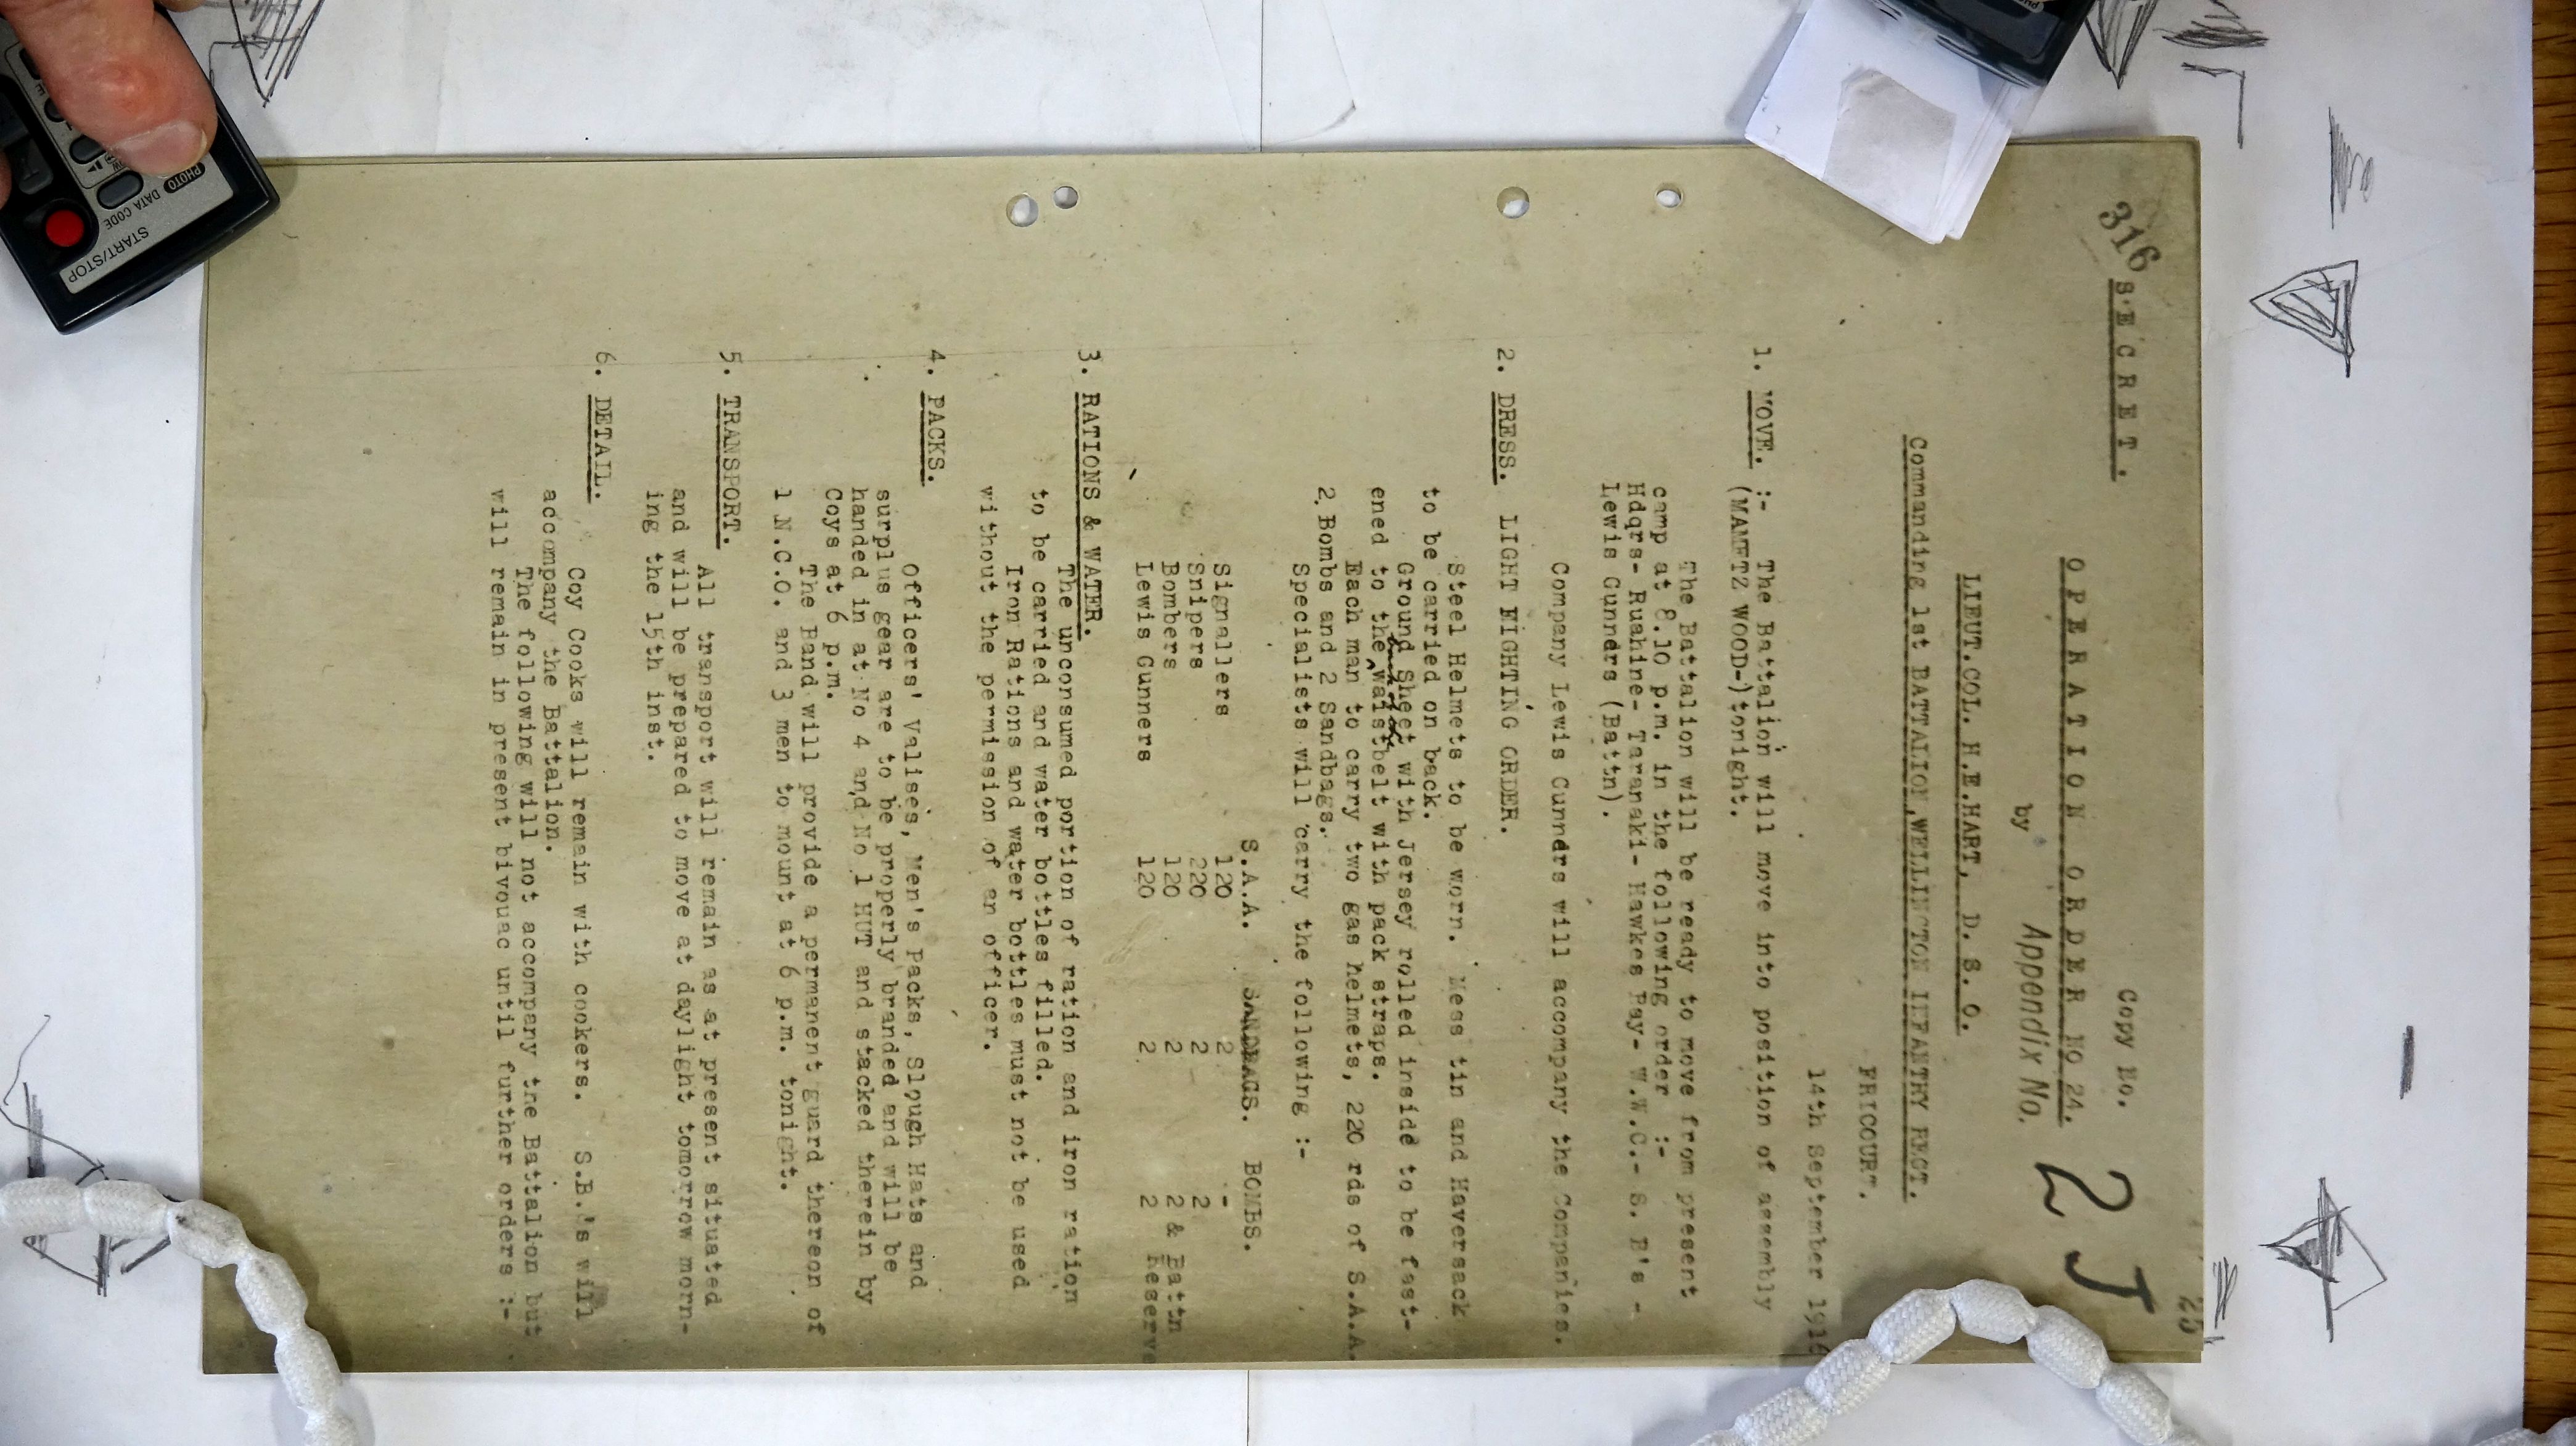 25
316
S E C R E T.
Copy No.
O P E R A T I O N   O R D E R   NO 24.
2 J
by
Appendix No.
LIEUT.COL. H.E.HART, D. S. O.
Commanding 1st BATTALION, WELLINGTON INFANTRY REGT.
FRICOURT.
14th September 1916
1. MOVE. :- The Battalion will move into position of assembly
(MAMETZ WOOD-) tonight.
The Battalion will be ready to move from present
camp at 8.10 p.m. in the following order :-
Hdqrs- Ruahine- Taranaki- Hawkes Bay- W.W.C.- S. B's -
Lewis Gunners (Battn).
Company Lewis Gunners will accompany the Companies.
2. DRESS. LIGHT FIGHTING ORDER.
Steel Helmets to be worn. Mess tin and Haversack
to be carried on back.
Ground Sheet with Jersey rolled inside to be fast-
ened to the waistbelt with pack straps.
Each man to carry two gas helmets, 220 rds of S.A.A.
2 Bombs and 2 Sandbags.
Specialists will carry the following :-
S.A.A. SANDBAGS. BOMBS.
Signallers 120 2 -
Snipers 220 2 2
Bombers 120 2 2 & Battn
Lewis Gunners 120 2 2 Reserve
3. RATIONS & WATER.
The unconsumed portion of ration and iron ration
to be carried and water bottles filled.
Iron Rations and water bottles must not be used
without the permission of an officer.
4. PACKS.
Officers' Valises, Men's Packs, Slough Hats and
surplus gear are to be properly branded and will be
handed in at No 4 and No 1 HUT and stacked therein by
Coys at 6 p.m.
The Band will provide a permanent guard thereon of
1 N.C.O. and 3 men to mount at 6 p.m. tonight.
5. TRANSPORT.
All transport will remain as at present situated
and will be prepared to move at daylight tomorrow morn-
ing the 15th inst.
6. DETAIL.
Coy Cooks will remain with cookers. S.B.'s will
accompany the Battalion.
The following will not accompany the Battalion but
will remain in present bivouac until further orders :-
PHOTO
DATA CODE
START/STOP